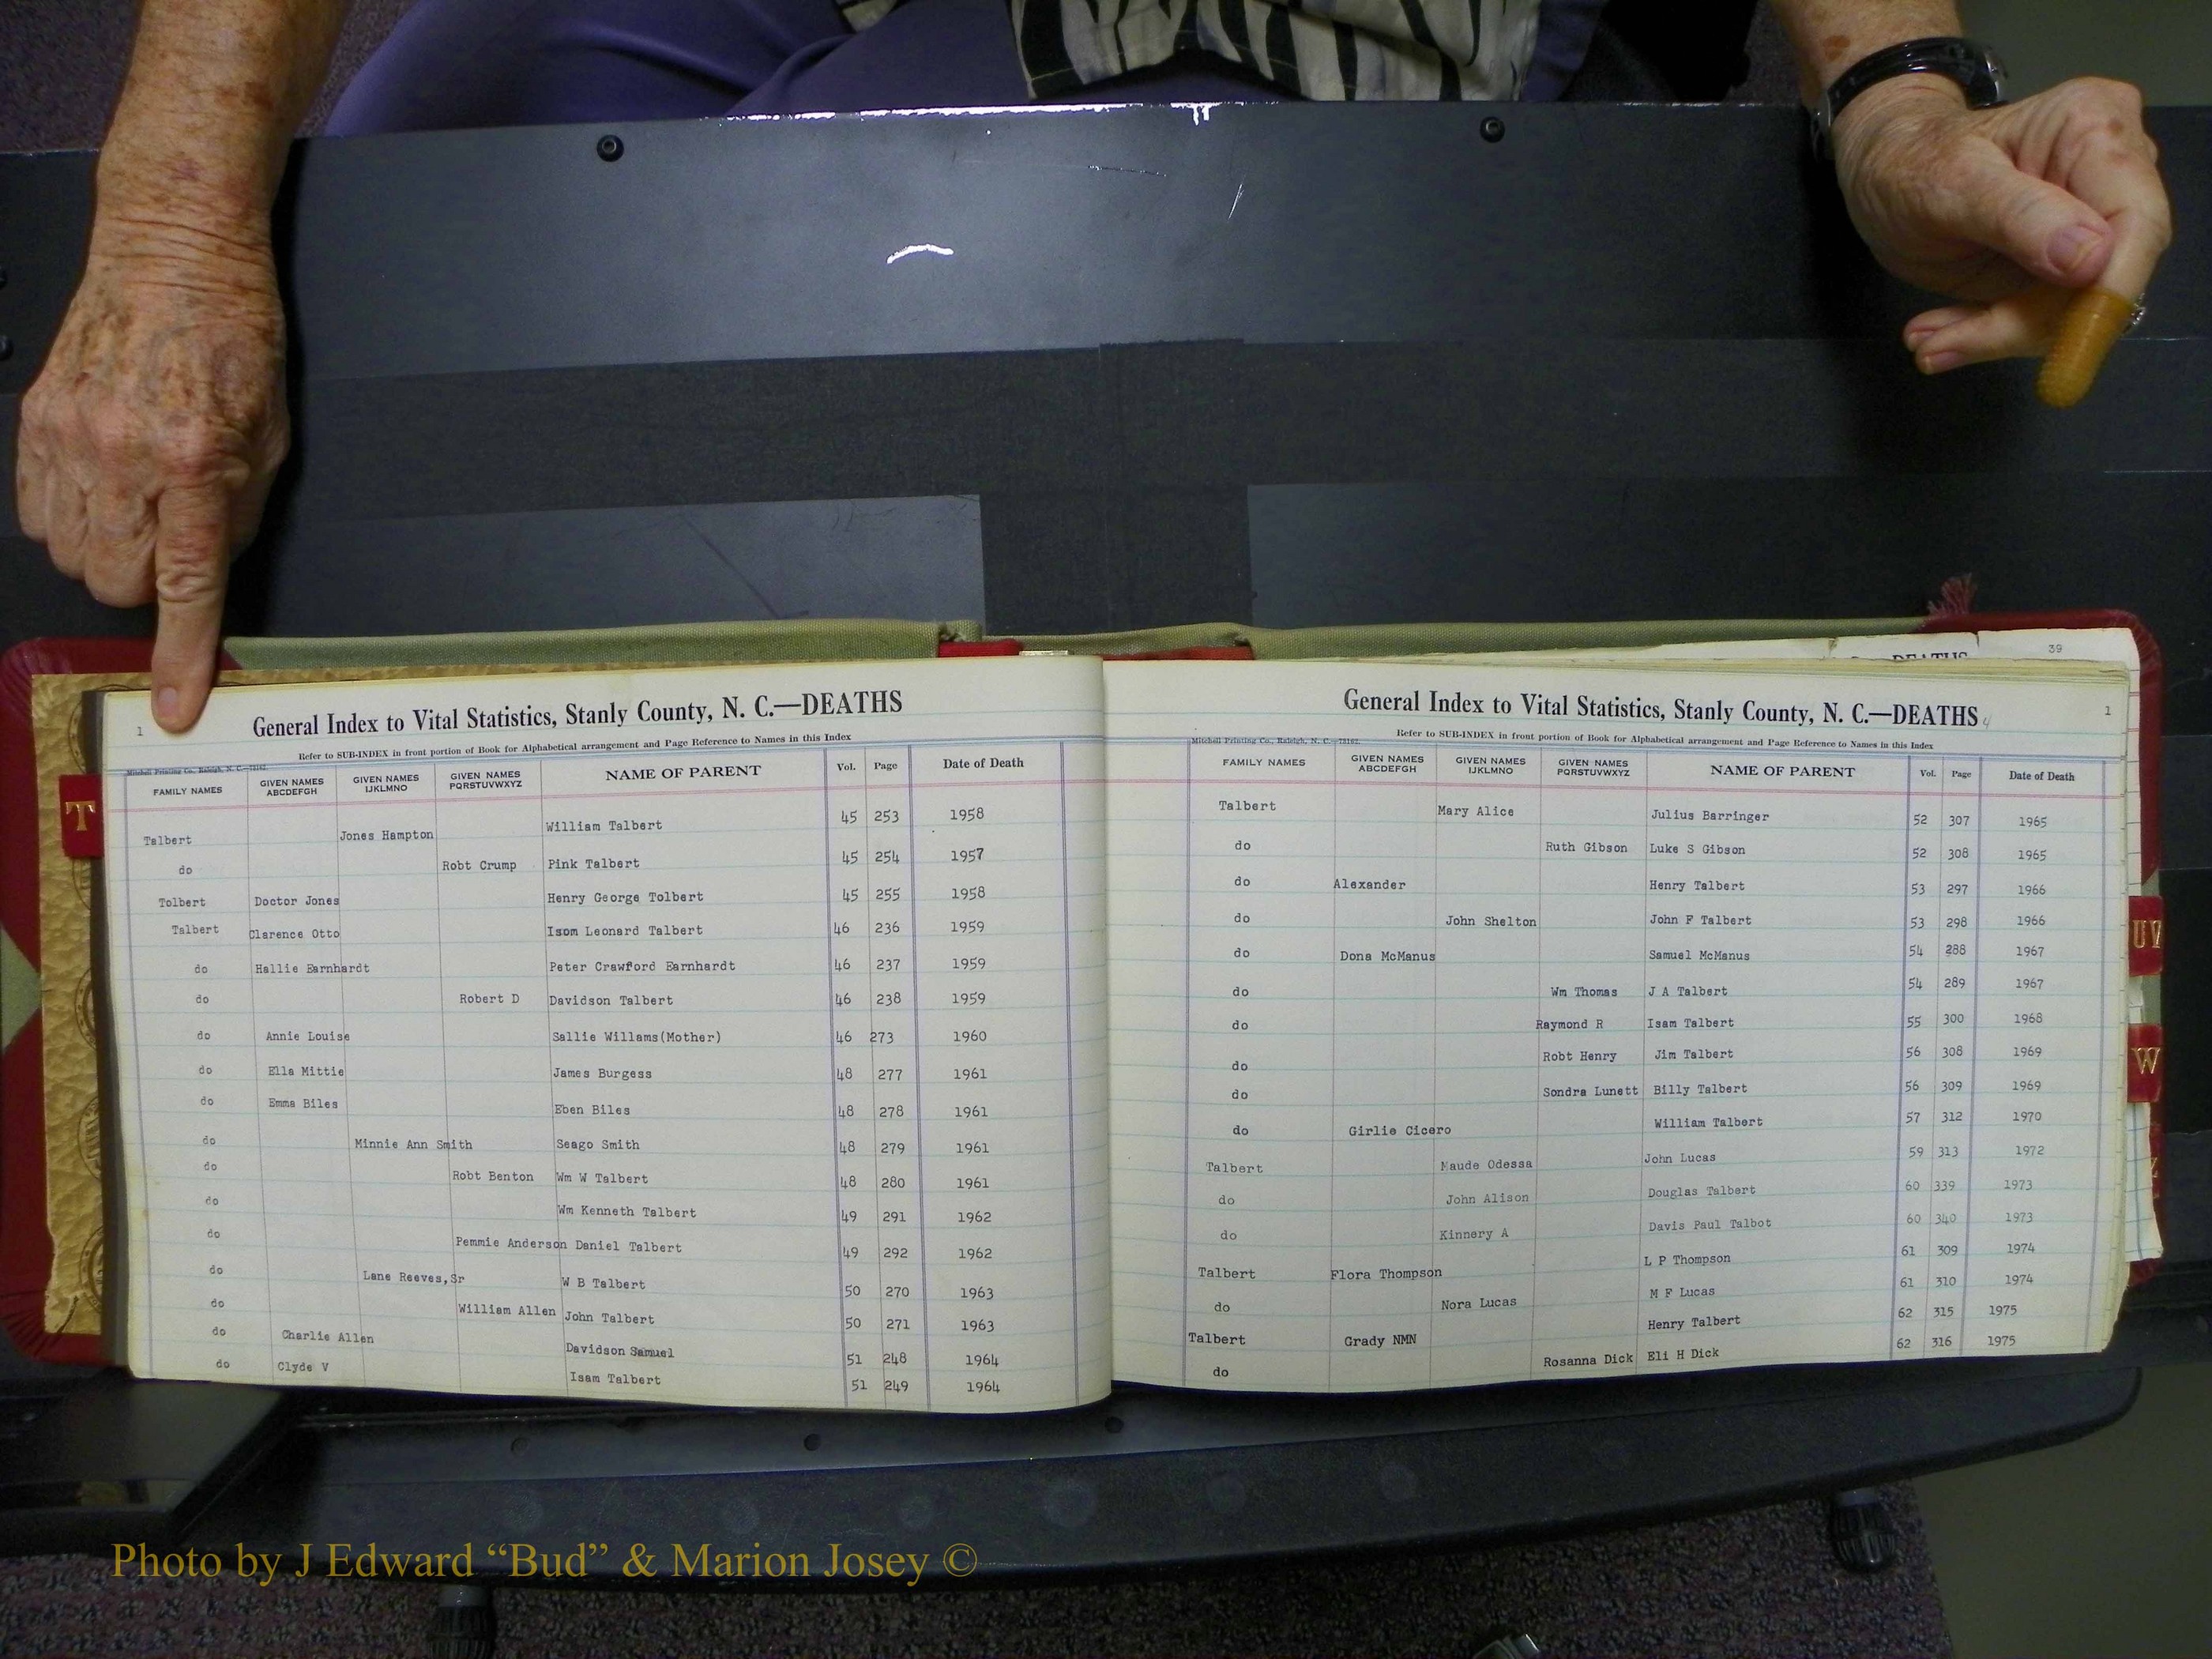 39
DEATHS
1
General Index to Vital Statistics, Stanly County, N. C.—DEATHS
Refer to SUB-INDEX in front portion of Book for Alphabetical arrangement and Page Reference to Names in this Index
Mitchell Printing Co., Raleigh, N. C.
FAMILY NAMES GIVEN NAMES ABCDEFGH GIVEN NAMES IJKLMNO GIVEN NAMES PQRSTUVWXYZ NAME OF PARENT Vol. Page Date of Death
T
Talbert Jones Hampton William Talbert 45 253 1958
do Robt Crump Pink Talbert 45 254 1957
Tolbert Doctor Jones Henry George Tolbert 45 255 1958
Talbert Clarence Otto Isom Leonard Talbert 46 236 1959
do Hallie Earnhardt Peter Crawford Earnhardt 46 237 1959
do Robert D Davidson Talbert 46 238 1959
do Annie Louise Sallie Willams(Mother) 46 273 1960
do Ella Mittie James Burgess 48 277 1961
do Emma Biles Eben Biles 48 278 1961
do Minnie Ann Smith Seago Smith 48 279 1961
do Robt Benton Wm W Talbert 48 280 1961
do Wm Kenneth Talbert 49 291 1962
do Pemmie Anderson Daniel Talbert 49 292 1962
do Lane Reeves,Sr W B Talbert 50 270 1963
do William Allen John Talbert 50 271 1963
do Charlie Allen Davidson Samuel 51 248 1964
do Clyde V Isam Talbert 51 249 1964
General Index to Vital Statistics, Stanly County, N. C.—DEATHS
1
Refer to SUB-INDEX in front portion of Book for Alphabetical arrangement and Page Reference to Names in this Index
Mitchell Printing Co., Raleigh, N. C.—73162.
FAMILY NAMES GIVEN NAMES ABCDEFGH GIVEN NAMES IJKLMNO GIVEN NAMES PQRSTUVWXYZ NAME OF PARENT Vol. Page Date of Death
Talbert Mary Alice Julius Barringer 52 307 1965
do Ruth Gibson Luke S Gibson 52 308 1965
do Alexander Henry Talbert 53 297 1966
do John Shelton John F Talbert 53 298 1966
do Dona McManus Samuel McManus 54 288 1967
do Wm Thomas J A Talbert 54 289 1967
do Raymond R Isam Talbert 55 300 1968
do Robt Henry Jim Talbert 56 308 1969
do Sondra Lunett Billy Talbert 56 309 1969
do Girlie Cicero William Talbert 57 312 1970
Talbert Maude Odessa John Lucas 59 313 1972
do John Alison Douglas Talbert 60 339 1973
do Kinnery A Davis Paul Talbot 60 340 1973
Talbert Flora Thompson L P Thompson 61 309 1974
do Nora Lucas M F Lucas 61 310 1974
Talbert Grady NMN Henry Talbert 62 315 1975
do Rosanna Dick Eli H Dick 62 316 1975
UV
W
Z
Photo by J Edward “Bud” & Marion Josey ©